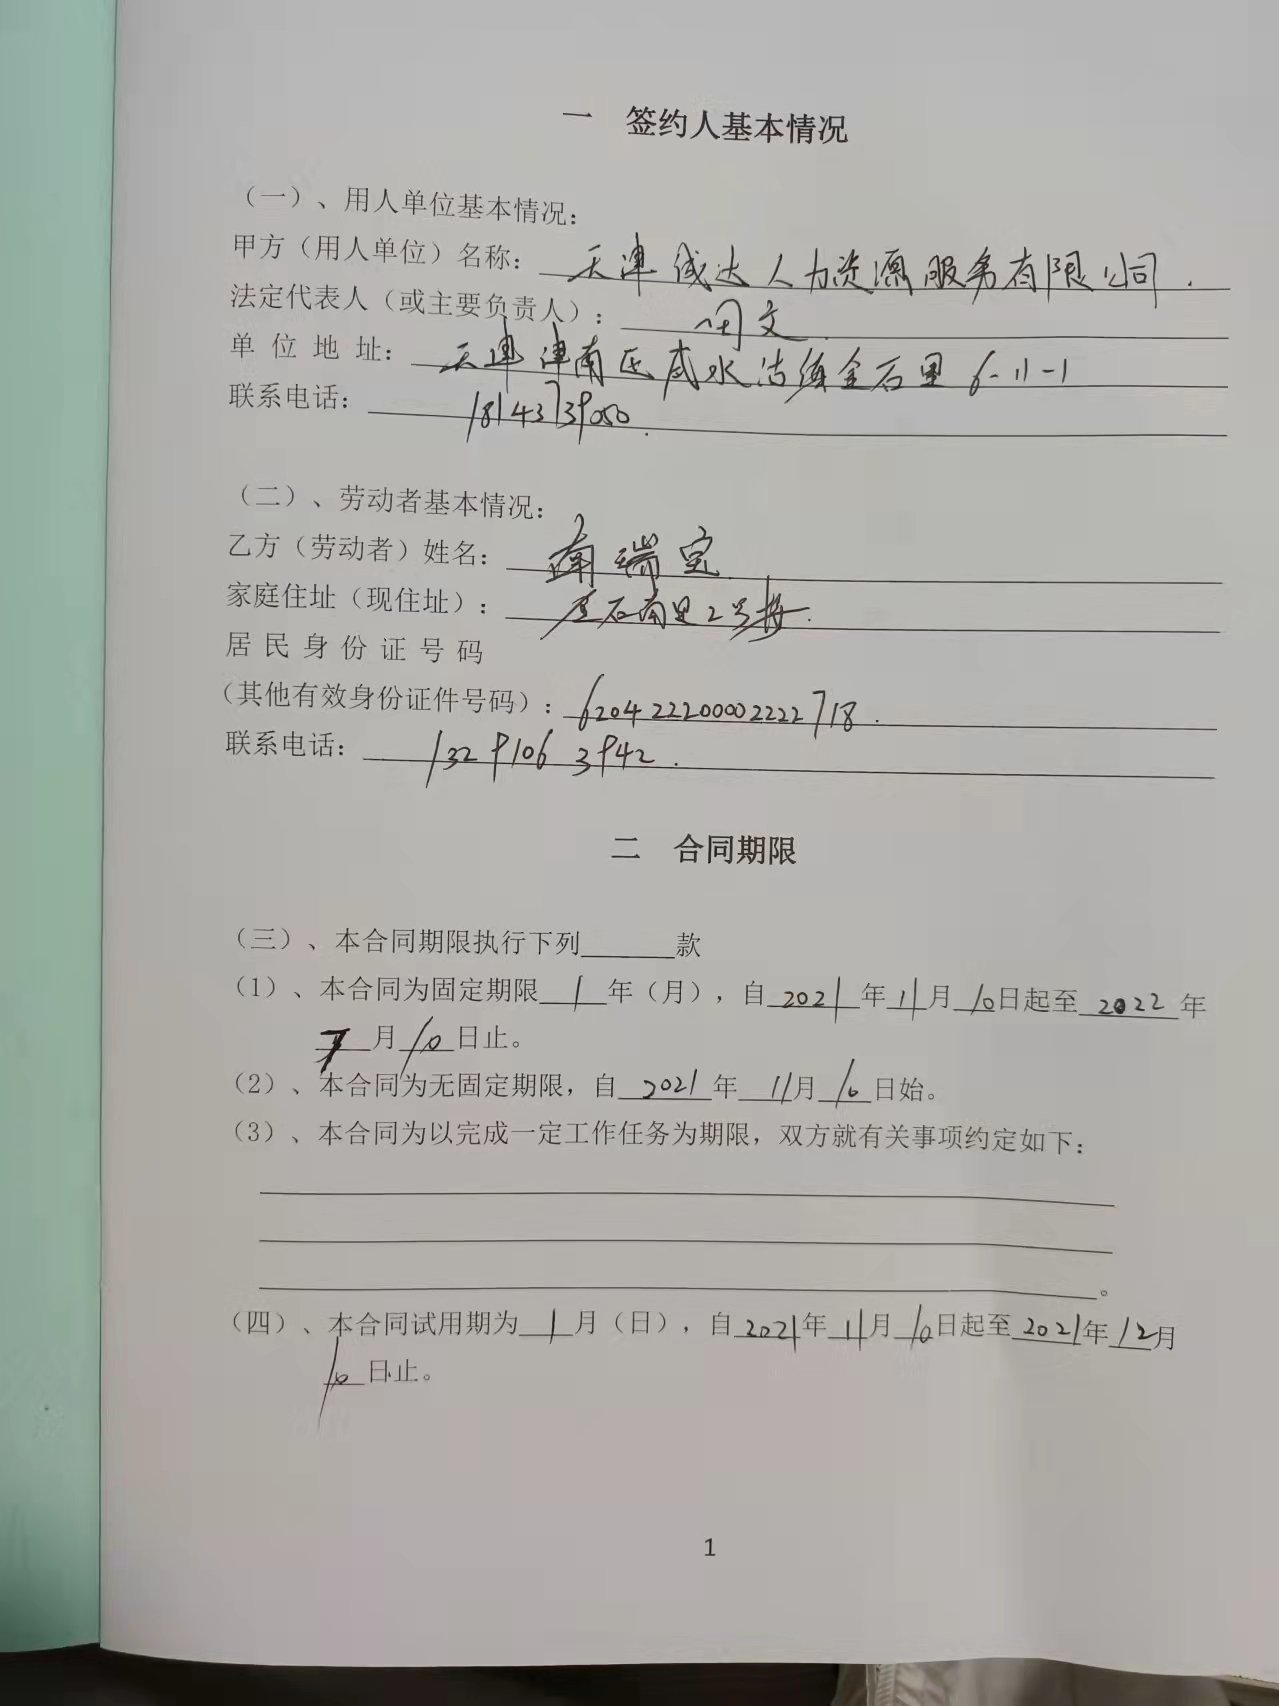 一 签约人基本情况
（一）、用人单位基本情况：
甲方（用人单位）名称： 天津诚达人力资源服务有限公司.
法定代表人（或主要负责人）： 田文
单 位 地 址： 天津津南区咸水沽镇金石里6-11-1
联系电话： 18143739050.
（二）、劳动者基本情况：
乙方（劳动者）姓名： 瑞宝
家庭住址（现住址）： 金石南里2号楼.
居 民 身 份 证 号 码
（其他有效身份证件号码）： 620422200002222718.
联系电话： 132 9106 3942.
二 合同期限
（三）、本合同期限执行下列______款
（1）、本合同为固定期限 1 年（月），自 2021 年 11 月 10 日起至 2022 年
月 10 日止。
（2）、本合同为无固定期限，自 2021 年 11 月 10 日始。
（3）、本合同为以完成一定工作任务为期限，双方就有关事项约定如下：
。
（四）、本合同试用期为 1 月（日），自 2021 年 11 月 10 日起至 2021 年 12 月
10 日止。
1